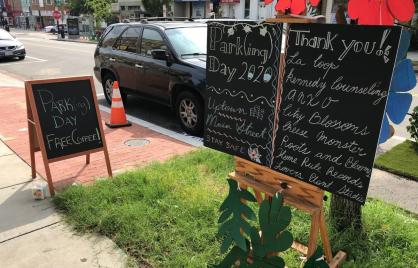 PARK(ing)
DAY
FREE Concert
Park(ing)
Day 2020
Uptown
Main Street
STAY SAFE
Thank you!
La loop
Kennedy Counseling
City Blossoms
Cheese Monster
Roots and Blooms
Home Rule Records